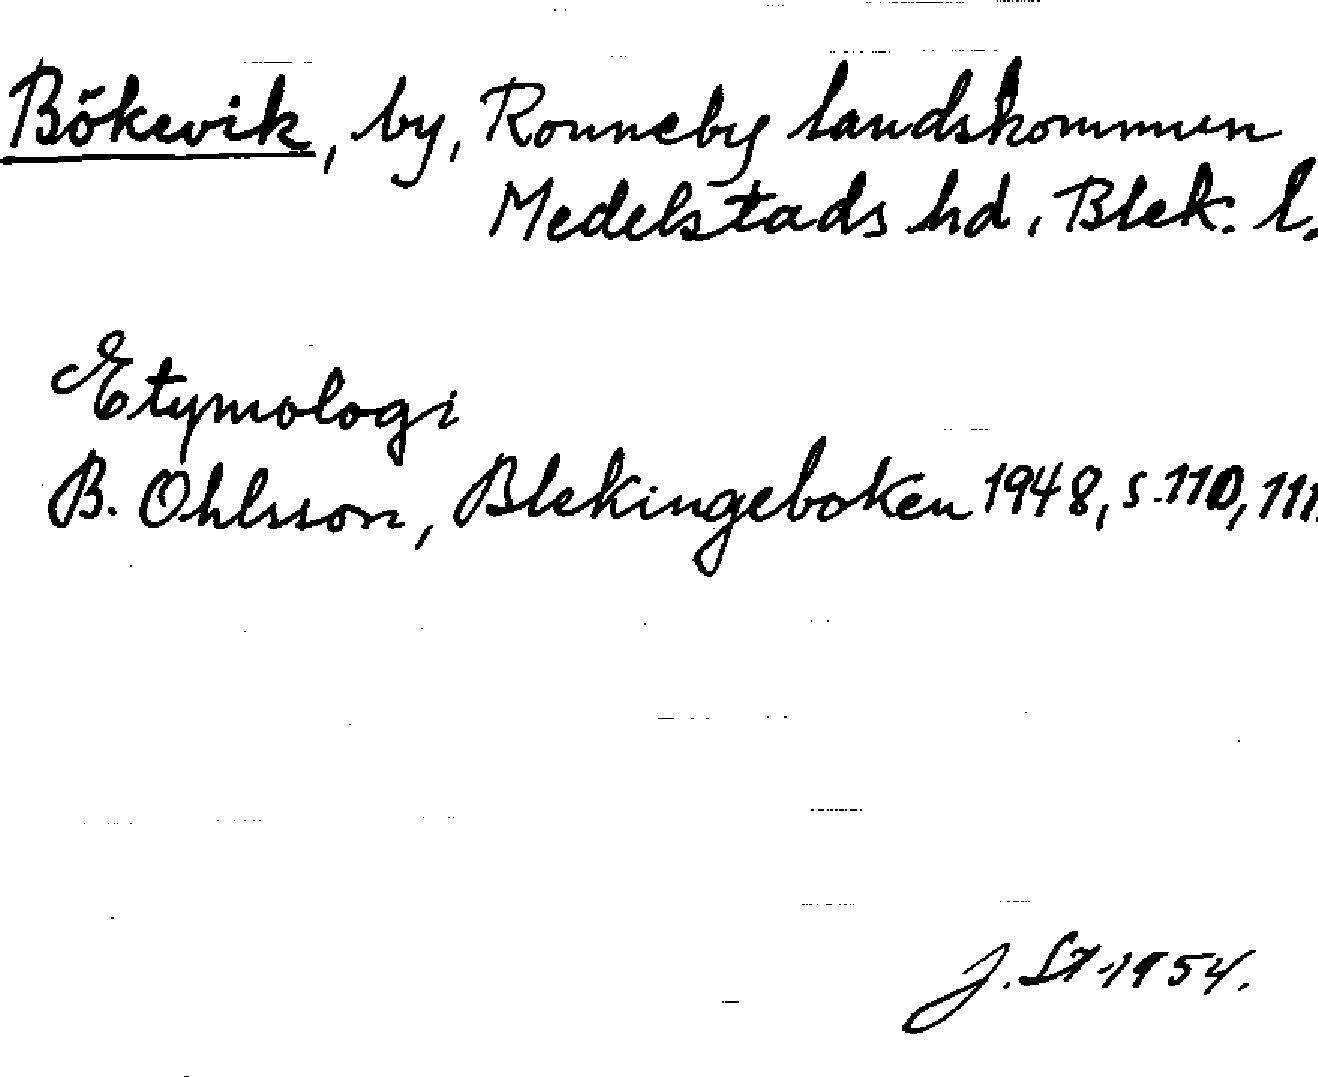 Bökevik, by, Ronneby landskommun
Medelstads hd, Blek. l.
Etymologi
B. Ohlsson, Blekingeboken 1948, s. 110, 111.
J. St 1954.